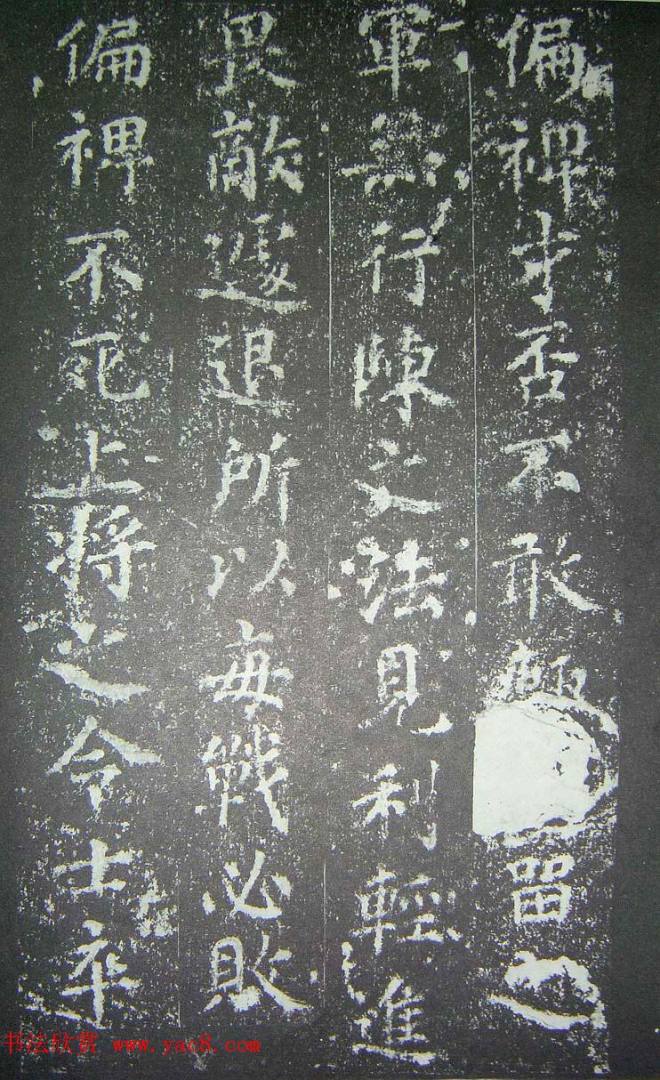 偏裨才否不敢輙留
軍無行陳之法見利輕進
畏敵遽退所以每戰必敗
偏裨不死上將之令士卒
书法欣赏 www.yac8.com